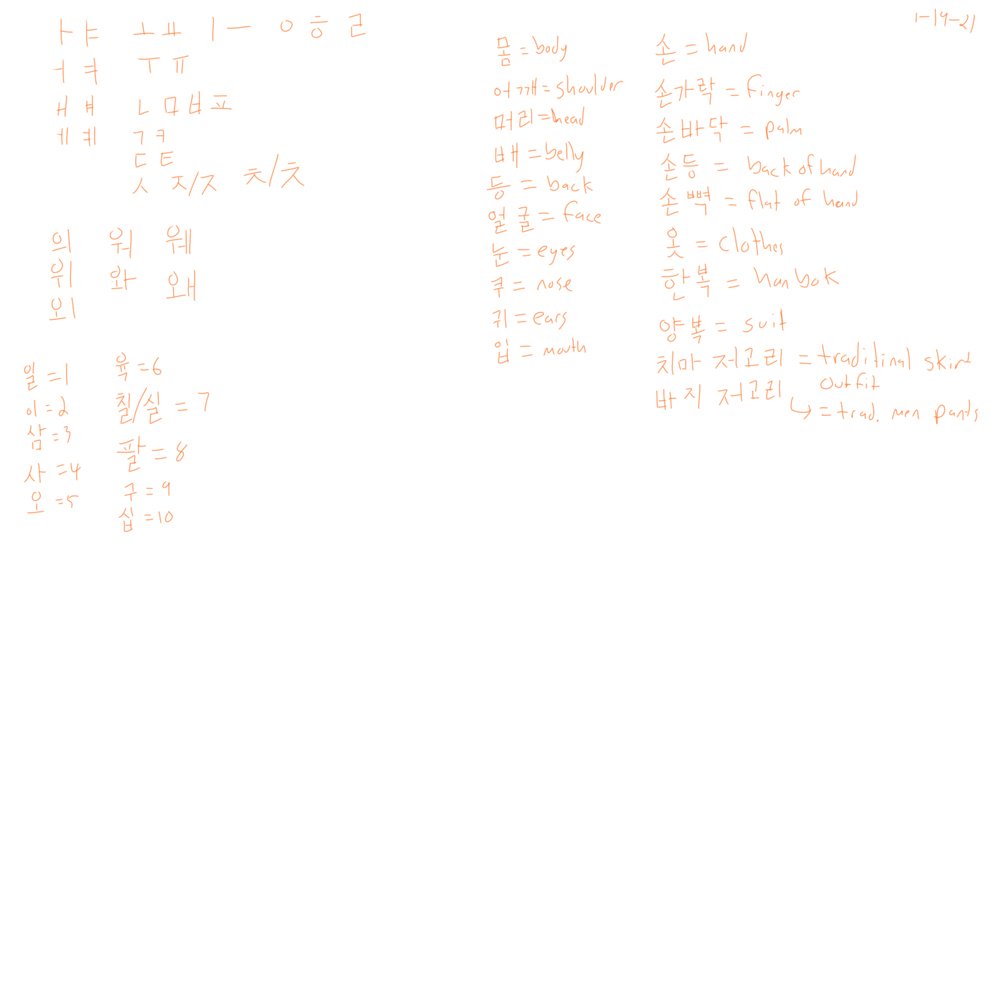 1-19-21
ㅏ ㅑ ㅗ ㅛ ㅣ ㅡ ㅇ ㅎ ㄹ
ㅓ ㅕ ㅜ ㅠ
ㅐ ㅒ ㄴ ㅁ ㅂ ㅍ
ㅔ ㅖ ㄱ ㅋ
ㄷ ㅌ
ㅅ ㅈ/ㅈ ㅊ/ㅊ
의 워 웨
위 와 왜
외
일 = 1
이 = 2
삼 = 3
사 = 4
오 = 5
육 = 6
칠/실 = 7
팔 = 8
구 = 9
십 = 10
몸 = body
어깨 = shoulder
머리 = head
배 = belly
등 = back
얼굴 = face
눈 = eyes
쿠 = nose
귀 = ears
입 = mouth
손 = hand
손가락 = finger
손바닥 = palm
손등 = back of hand
손뼉 = flat of hand
옷 = clothes
한복 = hanbok
양복 = suit
치마 저고리 = traditinal skirt
outfit
바지 저고리
↳ = trad. men pants